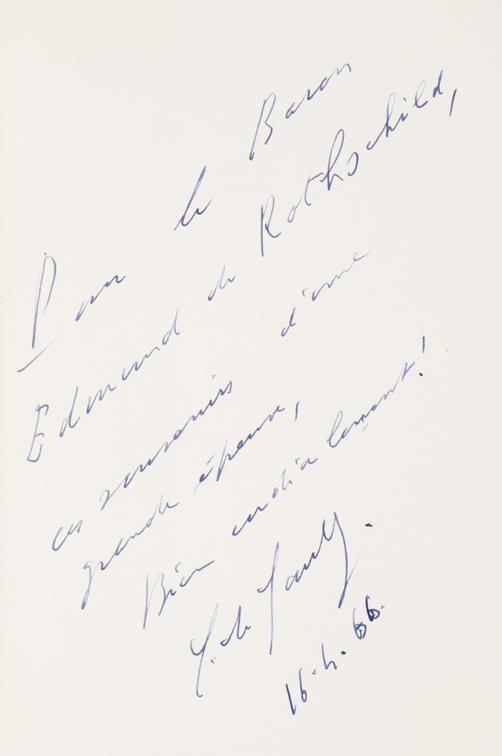 Pour le Baron
Edmund de Rothschild,
ces souvenirs d'une
grande épreuve,
Bien cordialement!
16.4.66.